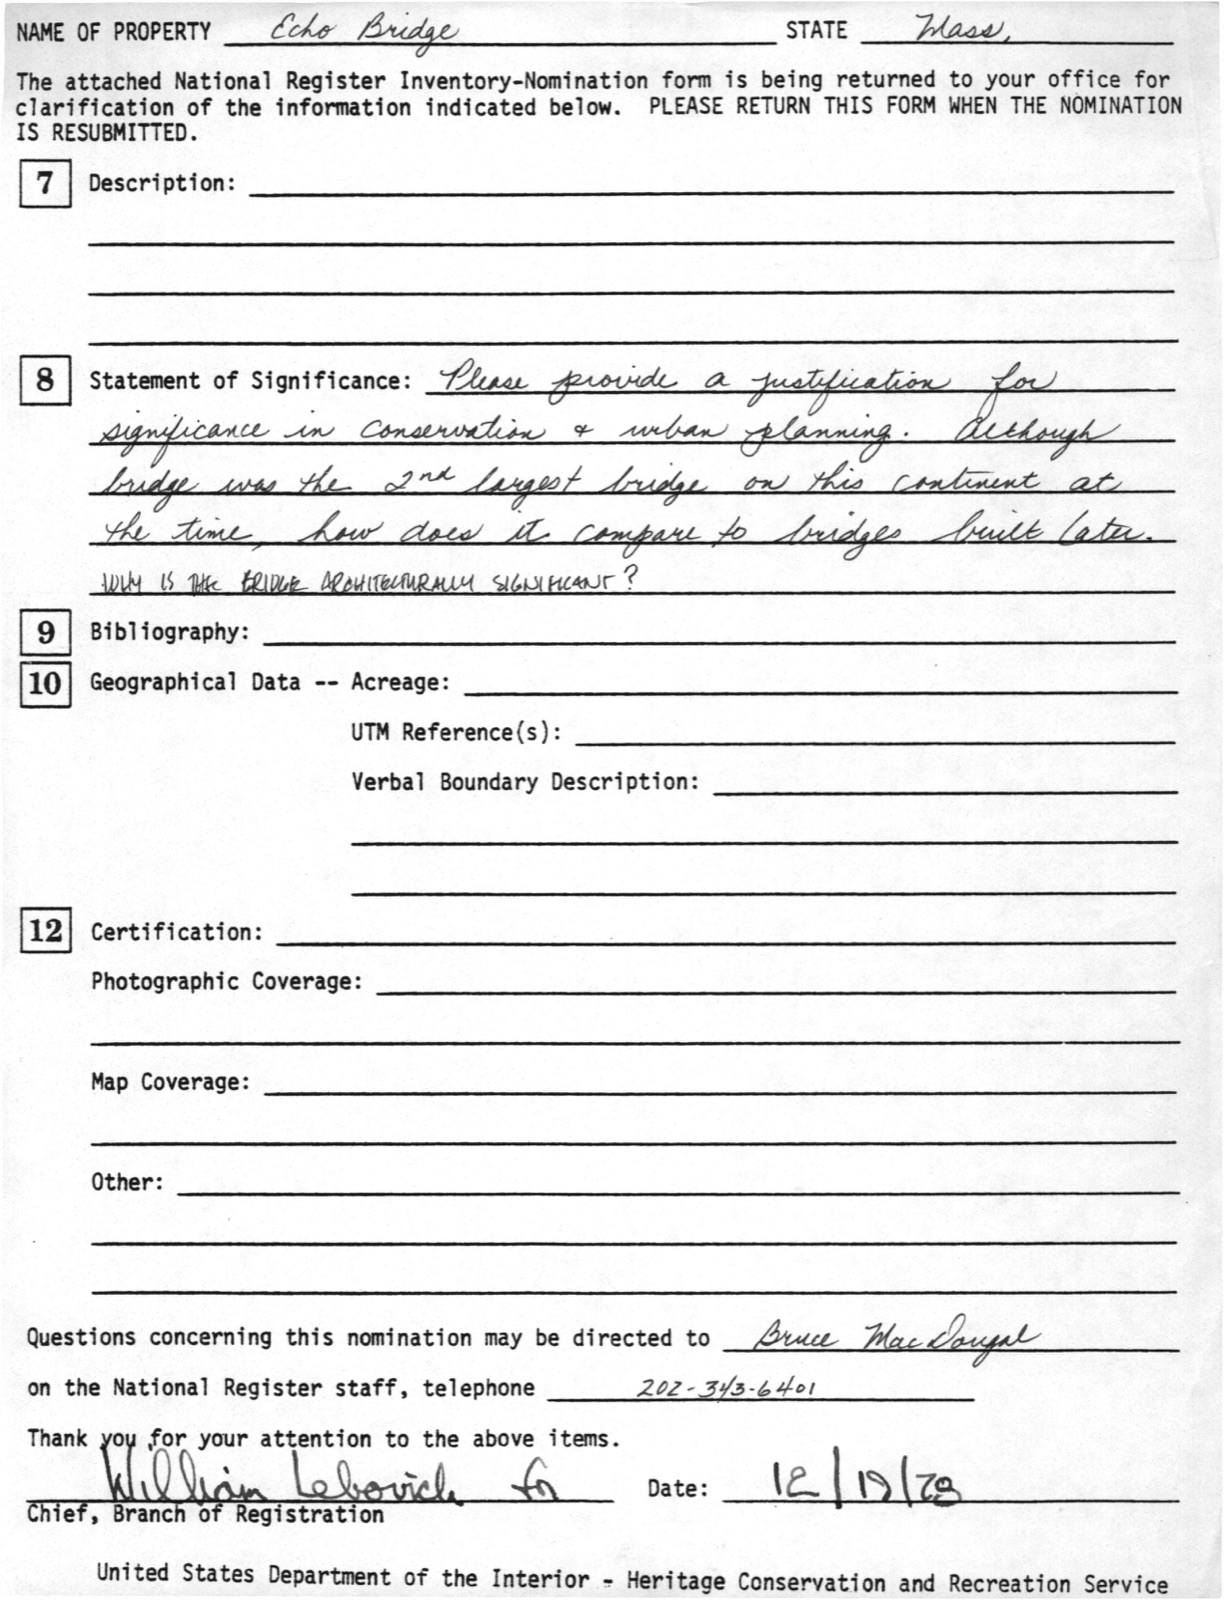 NAME OF PROPERTY Echo Bridge STATE Mass.
The attached National Register Inventory-Nomination form is being returned to your office for
clarification of the information indicated below. PLEASE RETURN THIS FORM WHEN THE NOMINATION
IS RESUBMITTED.
7 Description:
8 Statement of Significance: Please provide a justification for
significance in conservation & urban planning. Although
bridge was the 2nd largest bridge on this continent at
the time, how does it compare to bridges built later.
WHY IS THE BRIDGE ARCHITECTURALLY SIGNIFICANT?
9 Bibliography:
10 Geographical Data -- Acreage:
UTM Reference(s):
Verbal Boundary Description:
12 Certification:
Photographic Coverage:
Map Coverage:
Other:
Questions concerning this nomination may be directed to Bruce MacDougal
on the National Register staff, telephone 202-343-6401
Thank you for your attention to the above items.
William Lebovich for Date: 12/19/78
Chief, Branch of Registration
United States Department of the Interior - Heritage Conservation and Recreation Service